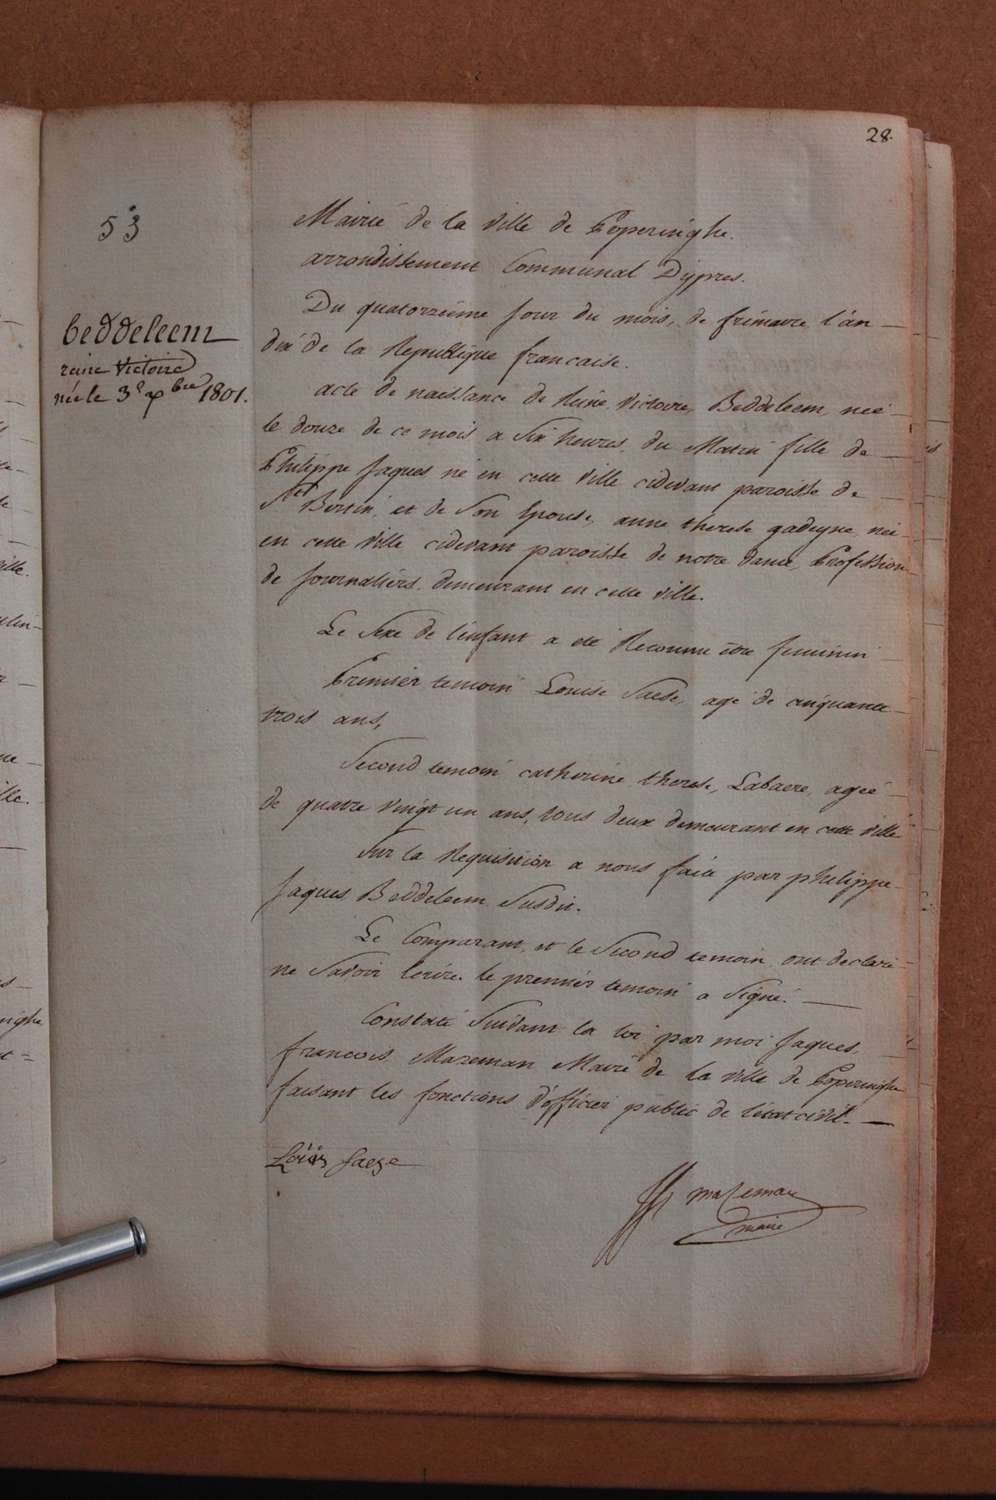 28.
53
Beddeleem
reine Victoire
née le 3e xbre 1801.
Mairie de la ville de Poperinghe.
arrondissement Communal D'ypres.
Du quatorzieme jour du mois, de frimaire l'an —
dix de la Republique francaise.
acte de naissance de Reine, Victoire, Beddeleem, neé —
le douze de ce mois a Six heures, du Matin fille de —
Philippe Jaques né en cette Ville cidevant paroisse de —
St Bertin, et de Son Epouse, anne therese gadeyne, neé —
en cette Ville cidevant paroisse de notre dame, Profession
de Journaliers, demeurant en cette ville.
Le Sexe de l'enfant a eté Reconnu être feminin —
Premier temoin Louise Saese, agé de cinquante —
trois ans,
Second temoin catherine therese, Labaere, ageé —
de quatre Vingt un ans, tous deux demeurant en cette Ville
Sur la Requisition a nous faite par philippe —
Jaques Beddeleem Susdit.
Le Comparant, et le Second temoin ont declaré —
ne Savoir Ecrire. le premier temoin a Signé. —
Constaté Suivant la loi par moi Jaques, —
francois Mazeman Maire de la ville de Poperinghe
faisant les fonctions d'officier public de l'état civil. —
Loüis Saese
mazeman
maire